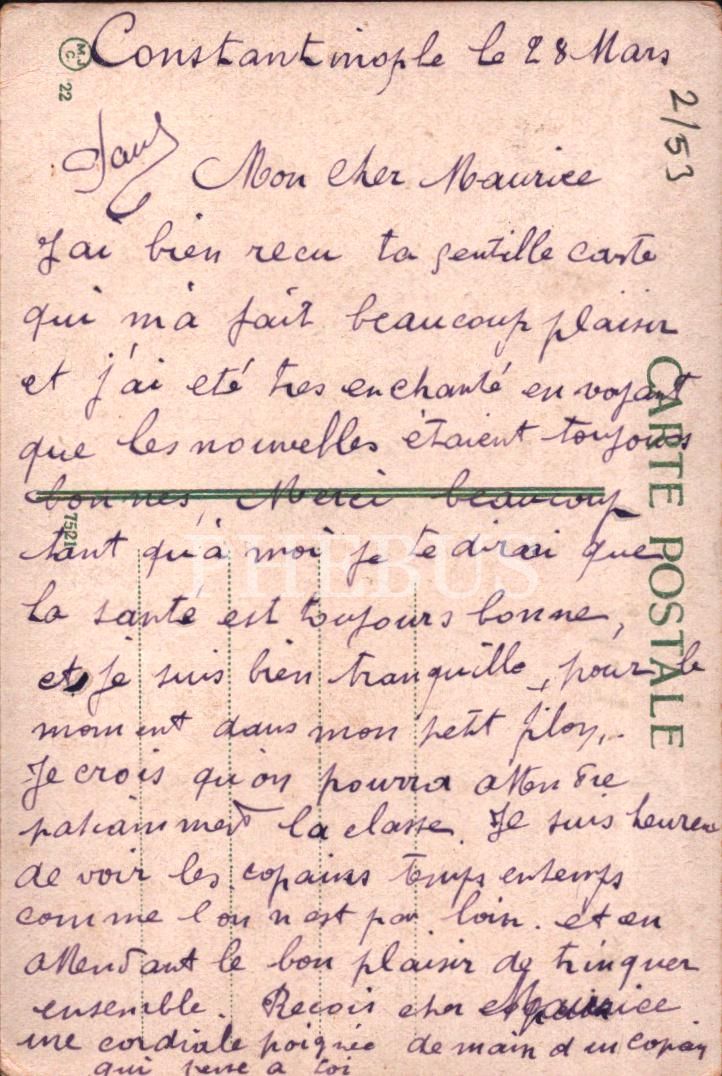 Constantinople le 28 Mars
M.J
C
22
2/53
Mon cher Maurice
J'ai bien recu ta gentille carte
qui m'a fait beaucoup plaisir
et j'ai eté tres enchanté en voyant
que les nouvelles étaient toujours
bonnes, Merci beaucoup
tant qu'à moi je te dirai que
la santé est toujours bonne,
et je suis bien tranquille, pour le
moment dans mon petit filon,.
Je crois qu'on pourra attendre
patiamment la classe. Je suis heureux
de voir les copains temps entemps
comme l'on n'est pas loin. et en
attendant le bon plaisir de trinquer
ensemble. Recois cher Maurice
une cordiale poignée de main d'un copain
qui pense a toi
CARTE POSTALE
7521
PHEBUS